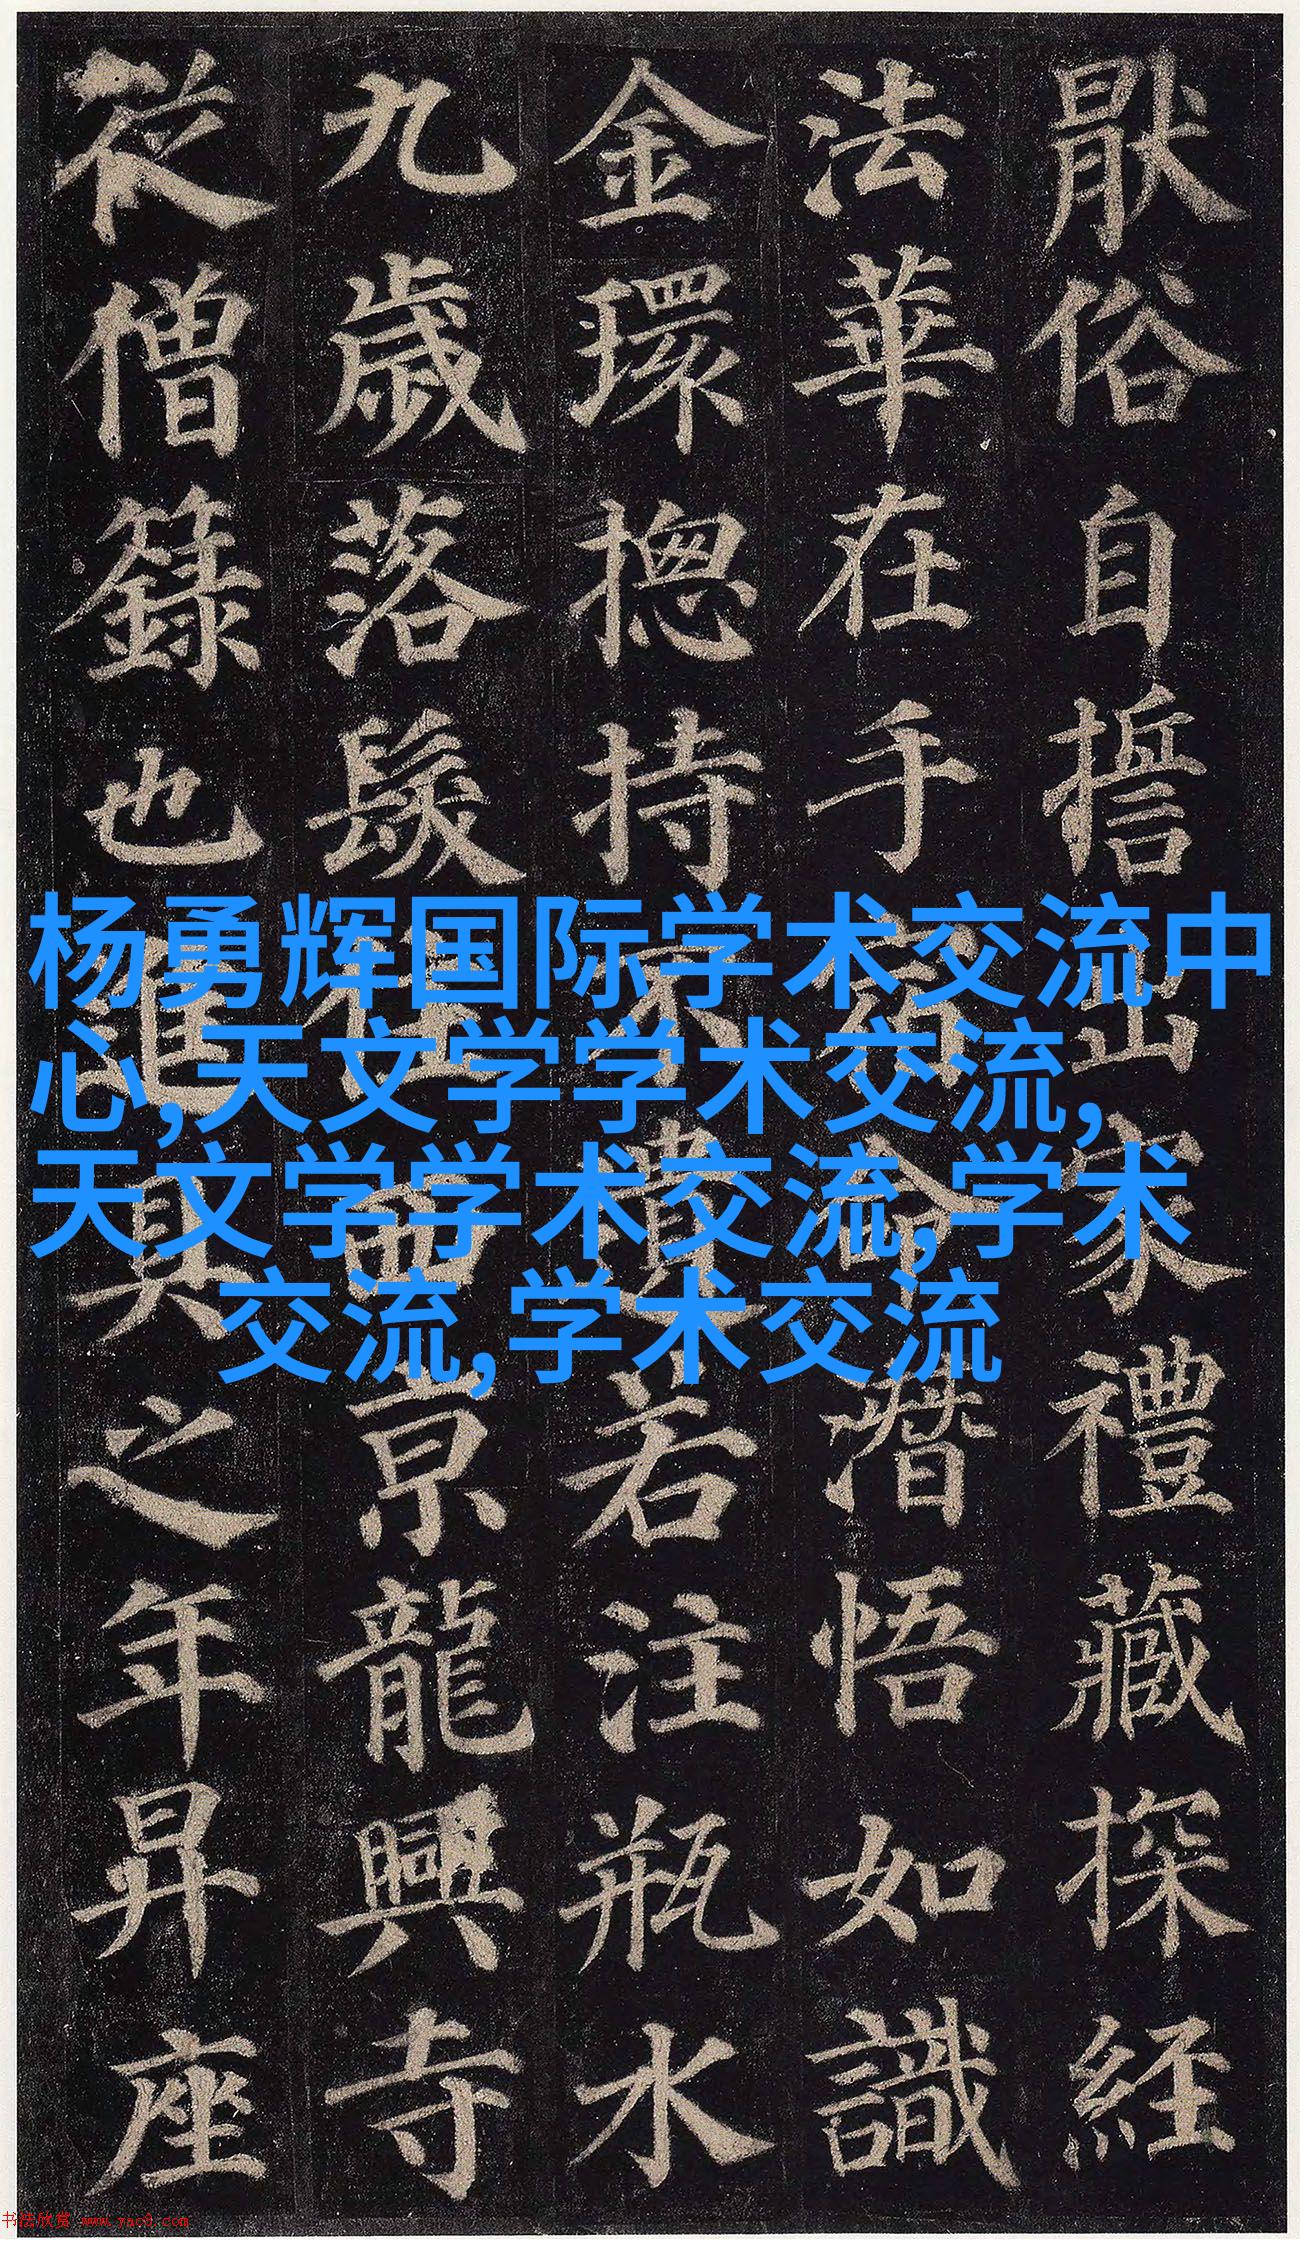 猒俗自誓出家禮藏探經
法華在手宿命潛悟如識
金環揔持不遺若注瓶水
九歲落髮住西京龍興寺
從僧籙也進具之年昇座
杨勇辉国际学术交流中
心,天文学学术交流,
天文学学术交流,学术
交流,学术交流
书法欣赏 www.yac8.com